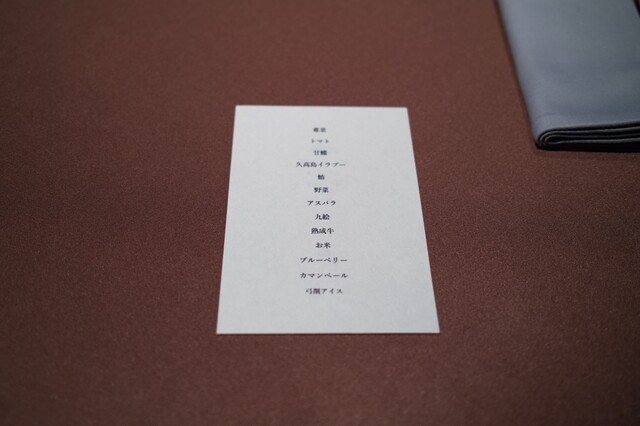 トマト
久高島イラブー
鮑
野菜
アスパラ
九絵
熟成牛
お米
ブルーベリー
カマンベール
弓削アイス